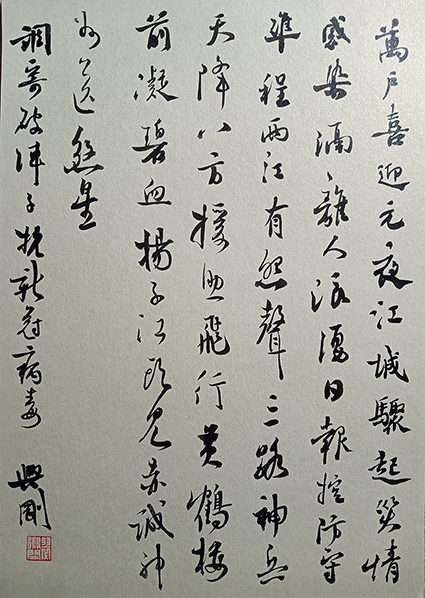 萬戶喜迎元夜江城驟起災情
感染隔離人添憂日報控防守
準程兩江有怨聲三路神兵
天降八方援飛行黃鶴樓
前凝碧血揚子江頭見赤誠神
州送煞星
調寄破陣子抗新冠病毒 興剛